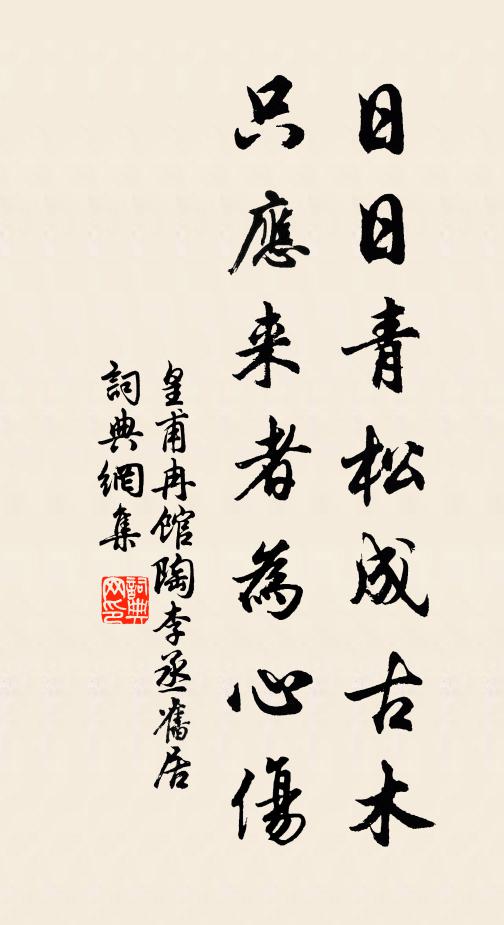 日日青松成古木
只應来者為心傷
皇甫冉館陶李丞舊居
詞典網集
詞典網印